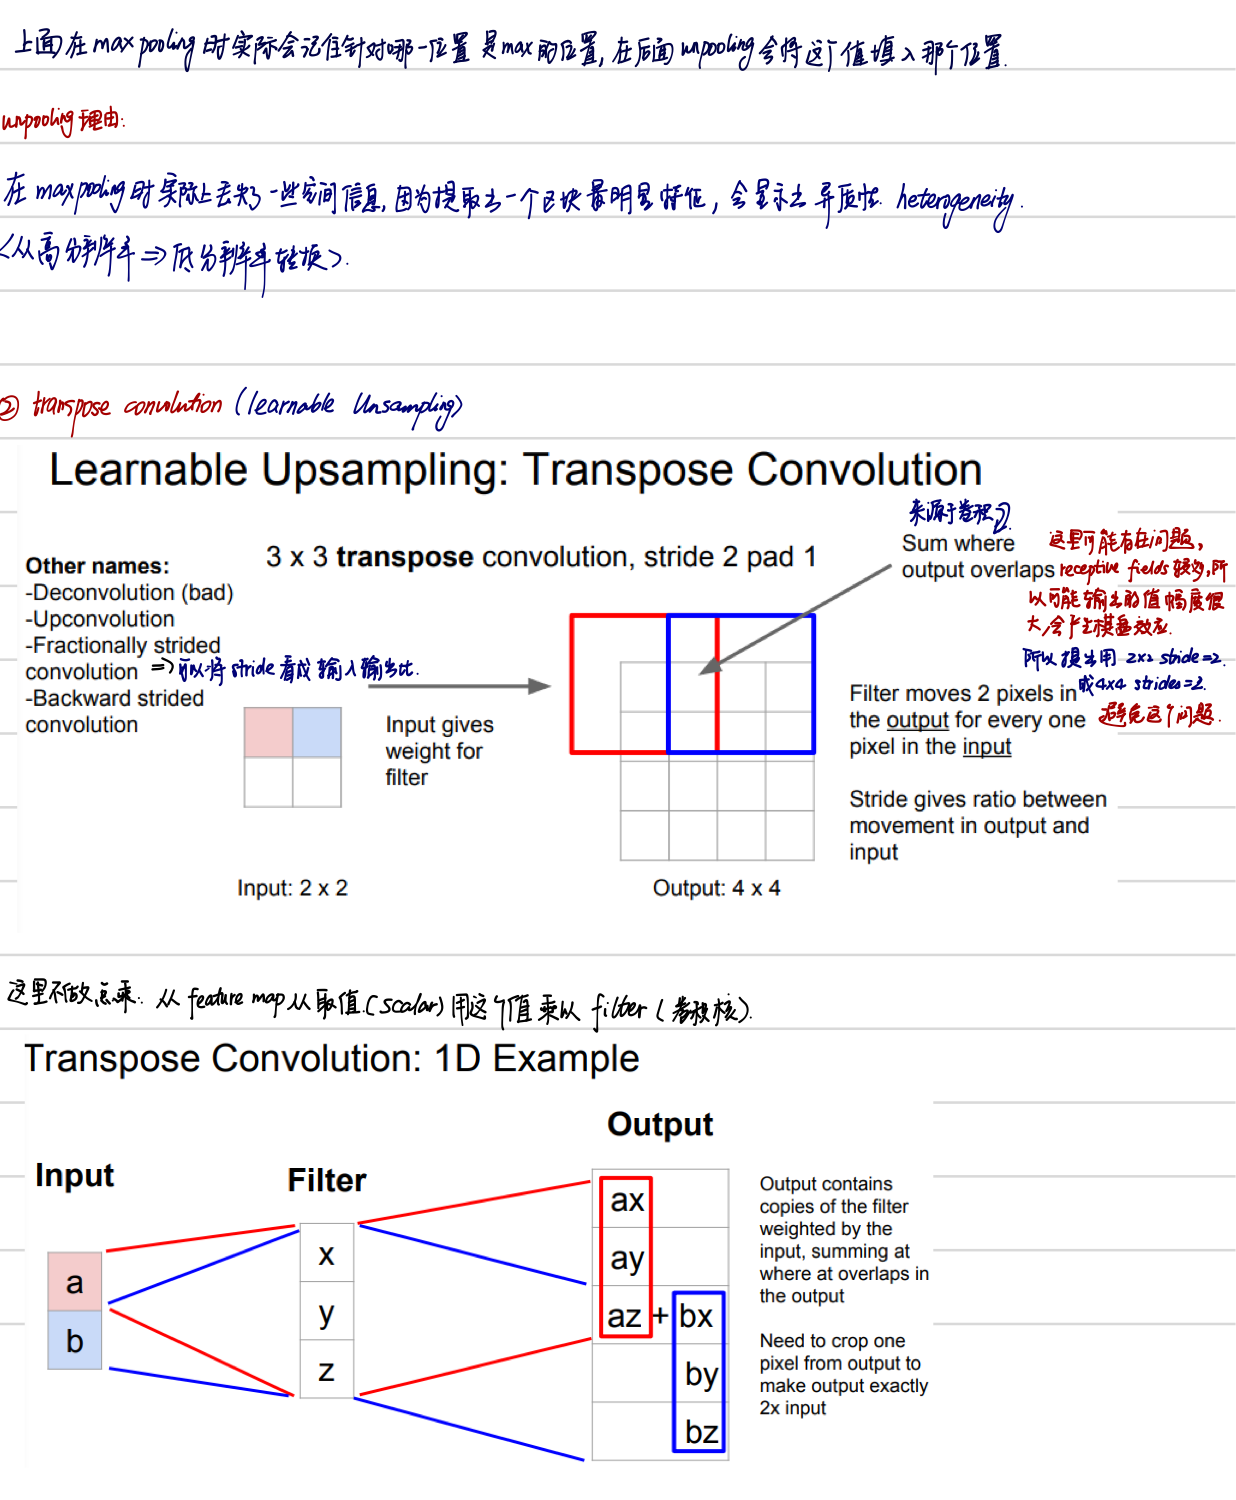 上面在 max pooling 时实际会记住针对哪一位置 是max 的位置, 在后面 unpooling 会将这个值填入那个位置.
unpooling 理由:
在 max pooling 时实际上丢失了一些空间信息, 因为提取出一个区块最明显特征, 会显示出异质性. heterogeneity.
<从高分辨率 ⇒ 低分辨率转换>.
② transpose convolution (learnable Unsampling)
Learnable Upsampling: Transpose Convolution
来源于卷积
Other names:
-Deconvolution (bad)
-Upconvolution
-Fractionally strided
convolution ⇒ 可以将 stride 看成输入输出比.
-Backward strided
convolution
3 x 3 transpose convolution, stride 2 pad 1
Sum where
output overlaps
这里可能存在问题,
receptive fields 较少, 所
以可能输出的值幅度很
大,会产生棋盘效应.
所以提出用 2x2 stride=2.
或 4x4 strides=2.
避免这个问题.
Input gives
weight for
filter
Filter moves 2 pixels in
the output for every one
pixel in the input
Stride gives ratio between
movement in output and
input
Input: 2 x 2
Output: 4 x 4
这里不做点乘. 从 feature map 从取值.(scalar) 用这个值乘以 filter (卷积核).
Transpose Convolution: 1D Example
Output
Input
Filter
a
b
x
y
z
ax
ay
az + bx
by
bz
Output contains
copies of the filter
weighted by the
input, summing at
where at overlaps in
the output
Need to crop one
pixel from output to
make output exactly
2x input